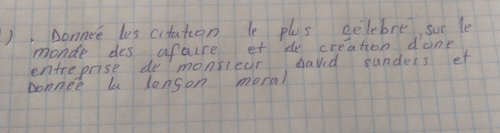 ) . Donneé les citation le plus célebre sur le
monde des afaire et de création d'une
entreprise de monsieur David sunders et
Donneé la lençon moral